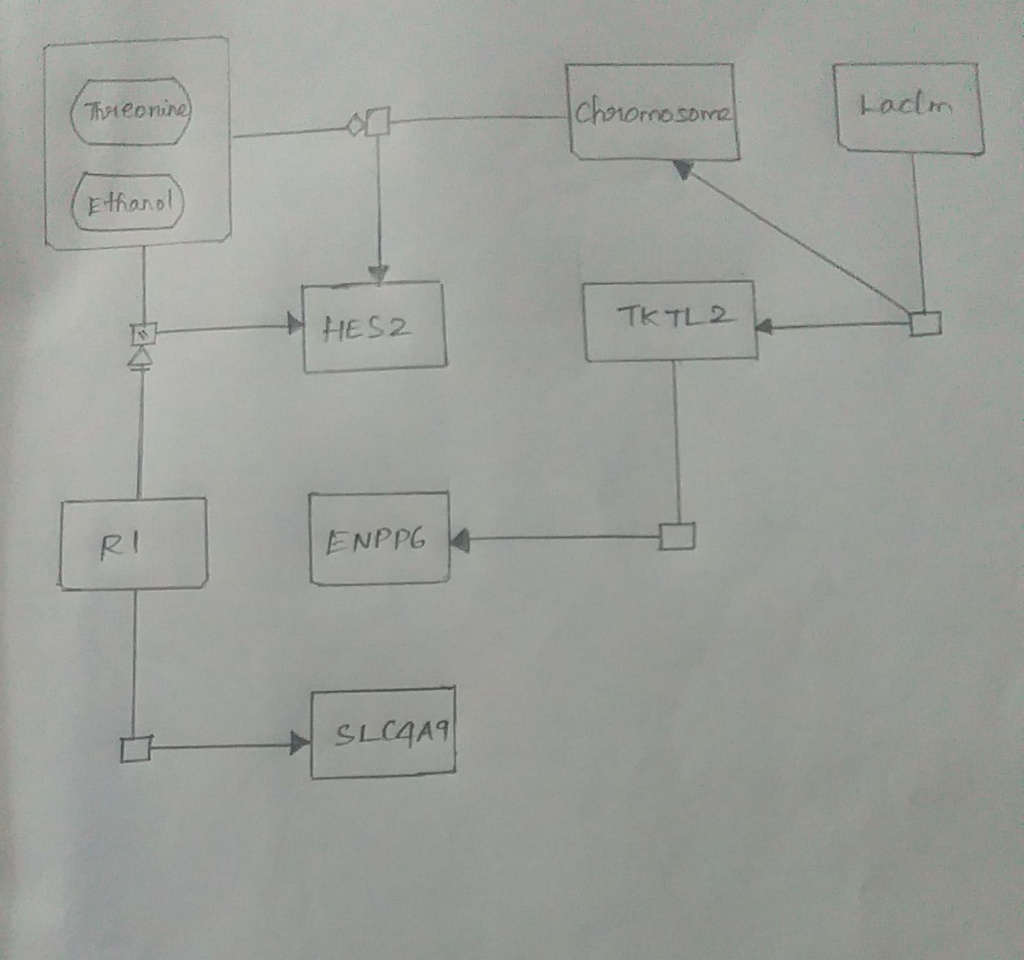 Threonine
Ethanol
Chromosome
Laclm
HES2
TKTL2
R1
ENPP6
SLC4A9